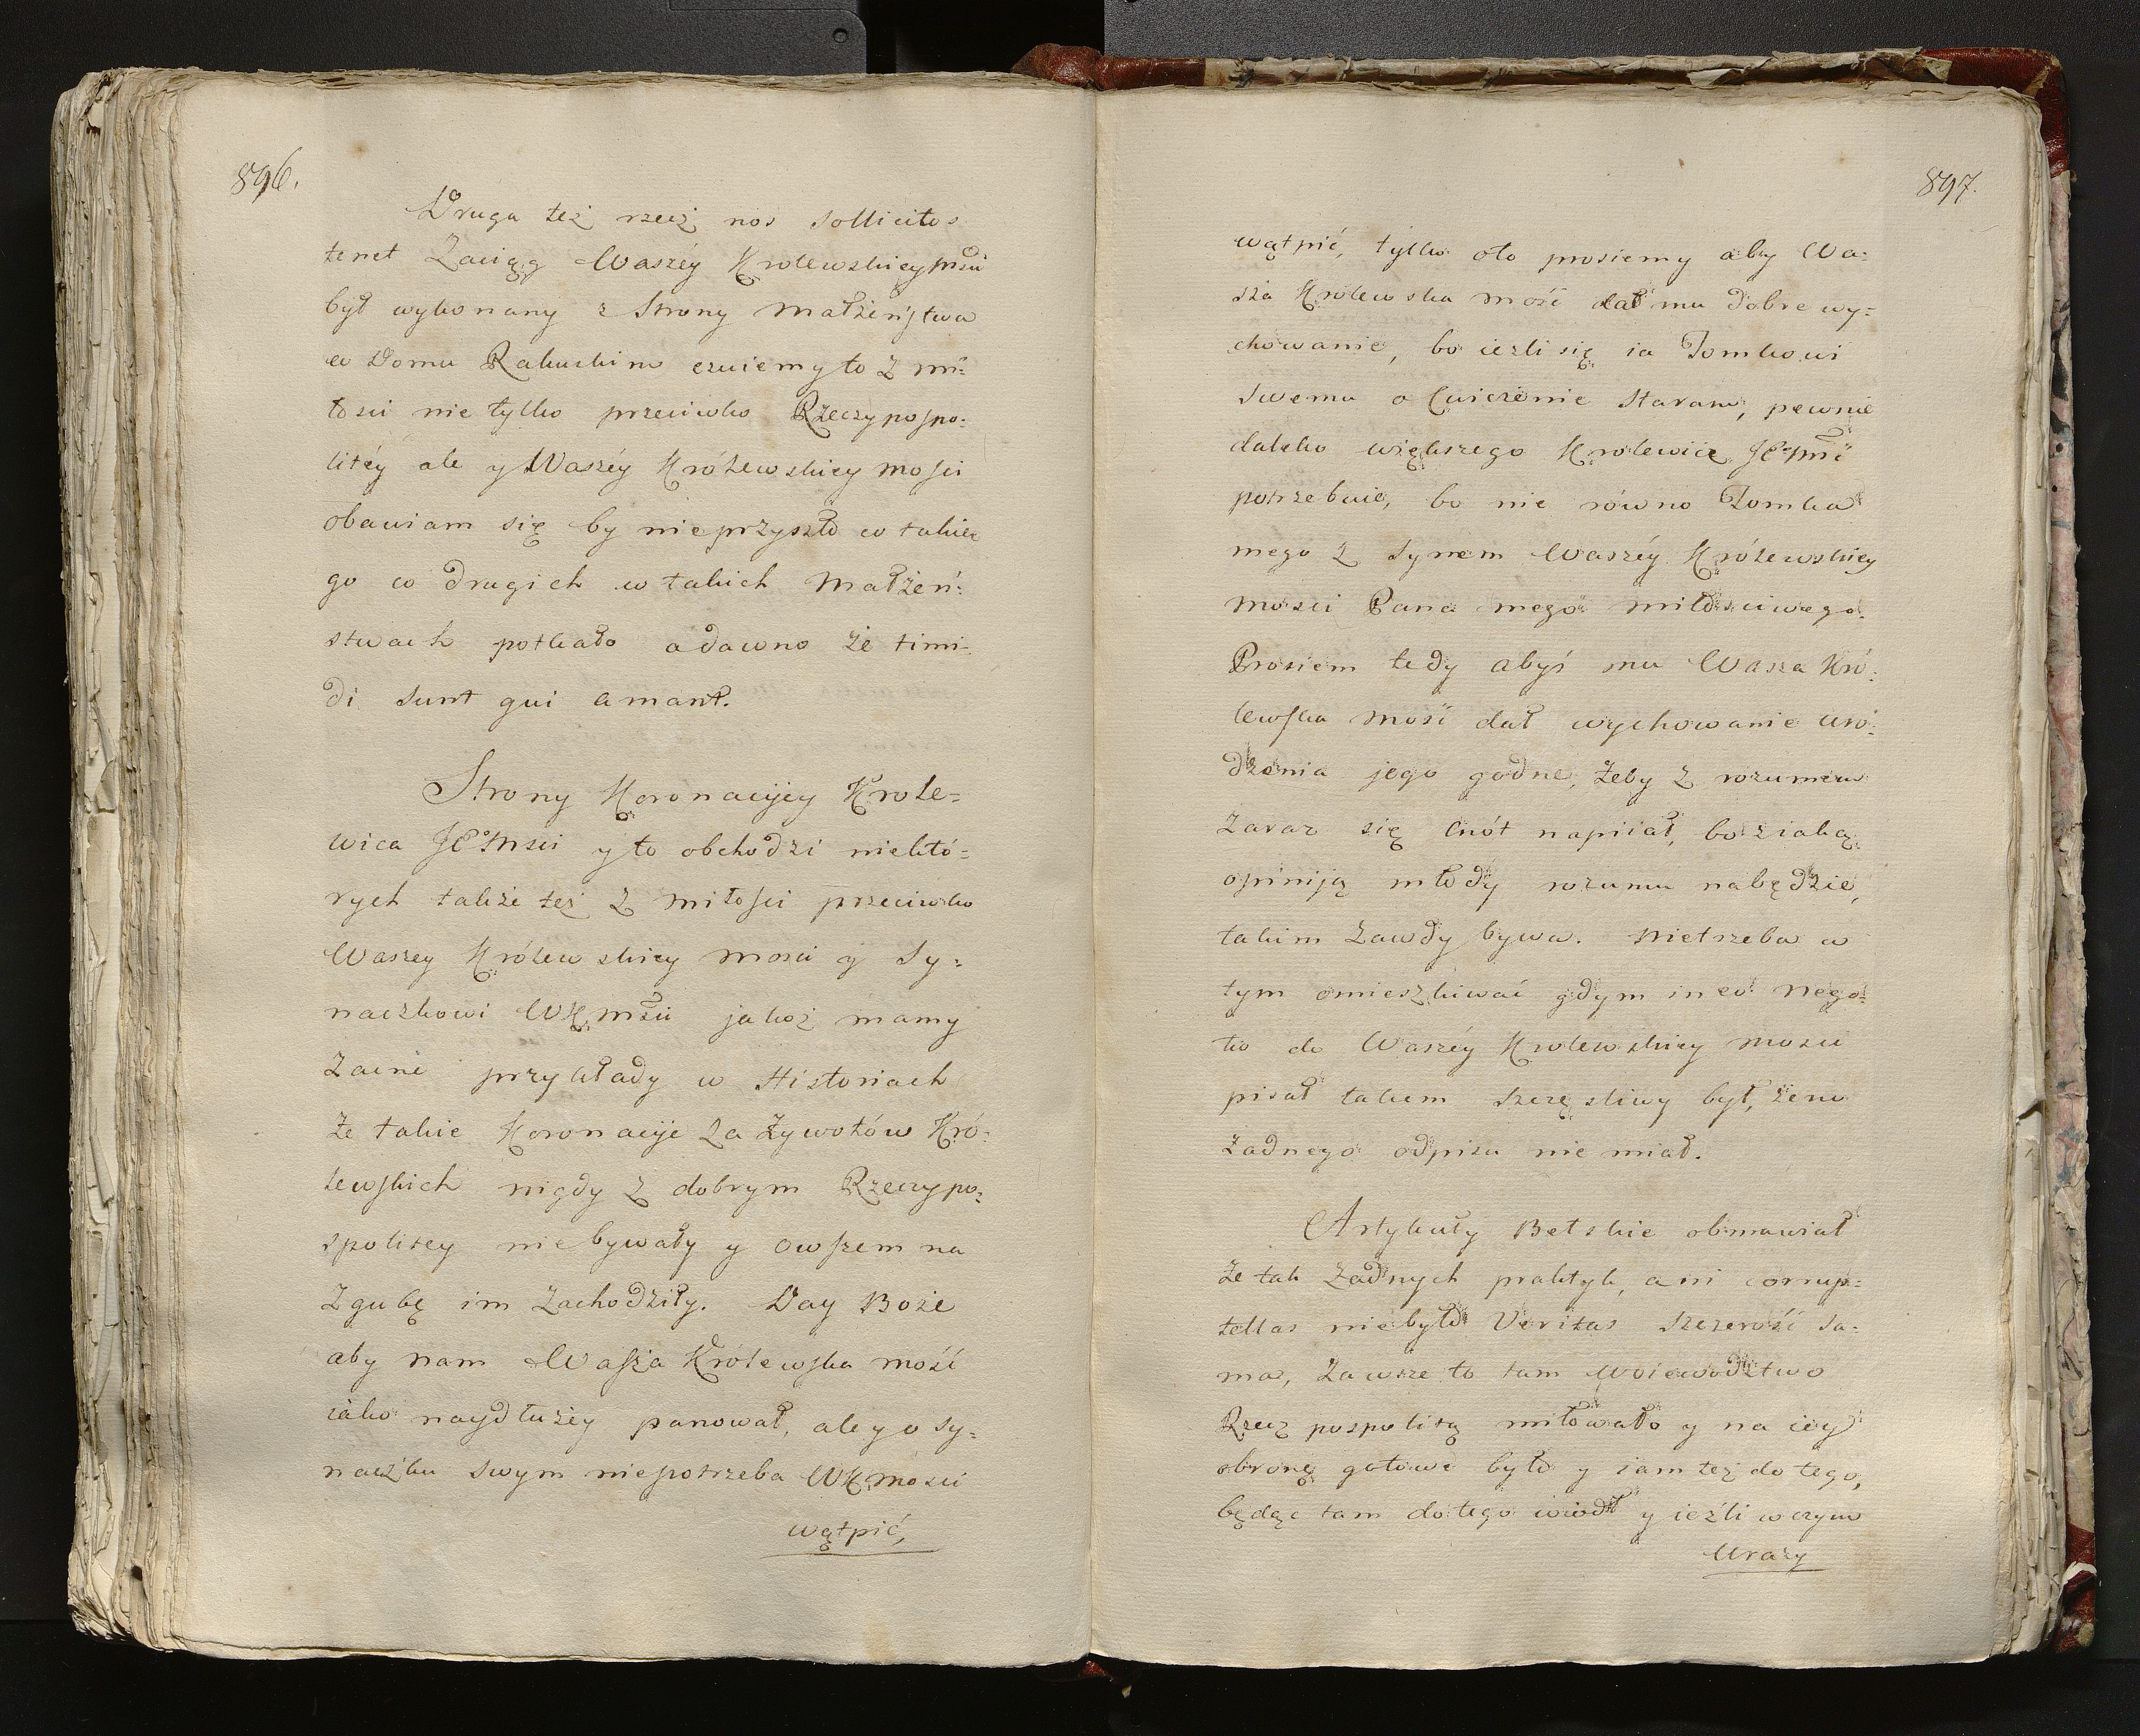 896.
Druga też rzecz nos sollicitos
tenet Zaciąg Waszéy Krolewskiey Mści
był wykonany z Strony Małżeństwa
w Domu Rakuskim czuiemy to z mi=
łosci nie tylko przeciwko Rzeczypospo=
litéy ale y Waszéy Królewskiey Mości
obawiam się by nieprzyszło co takie
go co drugich w takich Małżeń=
stwach potkało adawno że timi=
di sunt qui amant.
Strony Koronacyiey Krole=
wica JKMsci y to obchodzi niektó=
rych także też z miłości przeciwko
Waszey Królewskiey Mosci y Sy=
naczkowi WKMści jakoż mamy
Zacne przykłady w Historiach
że takie Koronacyie za Żywotów Kró=
lewskich nigdy z dobrym Rzeczypo=
spolitey niebywały y owszem na
Zgubę im Zachodziły. Day Boże
aby nam Wasza Królewska mość
iako naydłużéy panował, ale y o Sy=
naczku swym niepotrzeba WKMosci
wątpić,
897.
wątpić, tylko oto prosiemy aby Wa=
sza Królewska mość dał mu dobre wy=
chowanie, bo ieżli się ia Tomkowi
Swemu o Cwiczenie Staram, pewnie
daleko większego Krolewicz JKMć
potrzebuie, bo nie równo Tomka
mego z Synem Waszéy Królewskiey
Mosci Pana mego miłościwego.
Prosiem tedy abyś mu Wasza Kró=
lewska Mość dał wychowanie uro=
dzenia jego godne, żeby z rozumem
zaraz się cnót napiiał, bo z iaką
opiniją młody rozumu nabędzie,
takim zawdy bywa. Nietrzeba w
tym omieszkiwać gdym in eo nego=
tio do Waszéy Krolewskiey Mosci
pisał takem szczęsliwy był, żem
żadnego odpisu nie miał.
Artykuły Bełskie obmawiał
że tak żadnych praktyk, ani corrup=
tellas niebyło Veritas szczerość sa=
ma, zawsze to tam Woiewodztwo
Rzecz pospolitą miłowało y na iey
obronę gotowe było y iam też do tego,
będąc tam dotego wiódł y ieżli w czym
Urazy